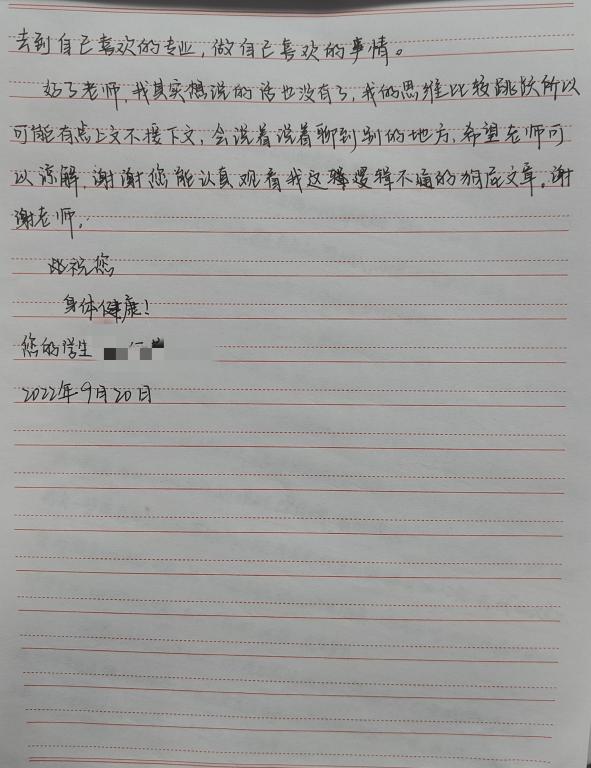 去到自己喜欢的专业，做自己喜欢的事情。
好了老师，我其实想说的话也没有了，我的思维比较跳跃所以
可能有点上文不接下文，会说着说着聊到别的地方，希望老师可
以谅解，谢谢您能认真观看我这逻辑不通的狗屁文章。谢
谢老师。
此祝您
身体健康！
您的学生
2022年9月20日